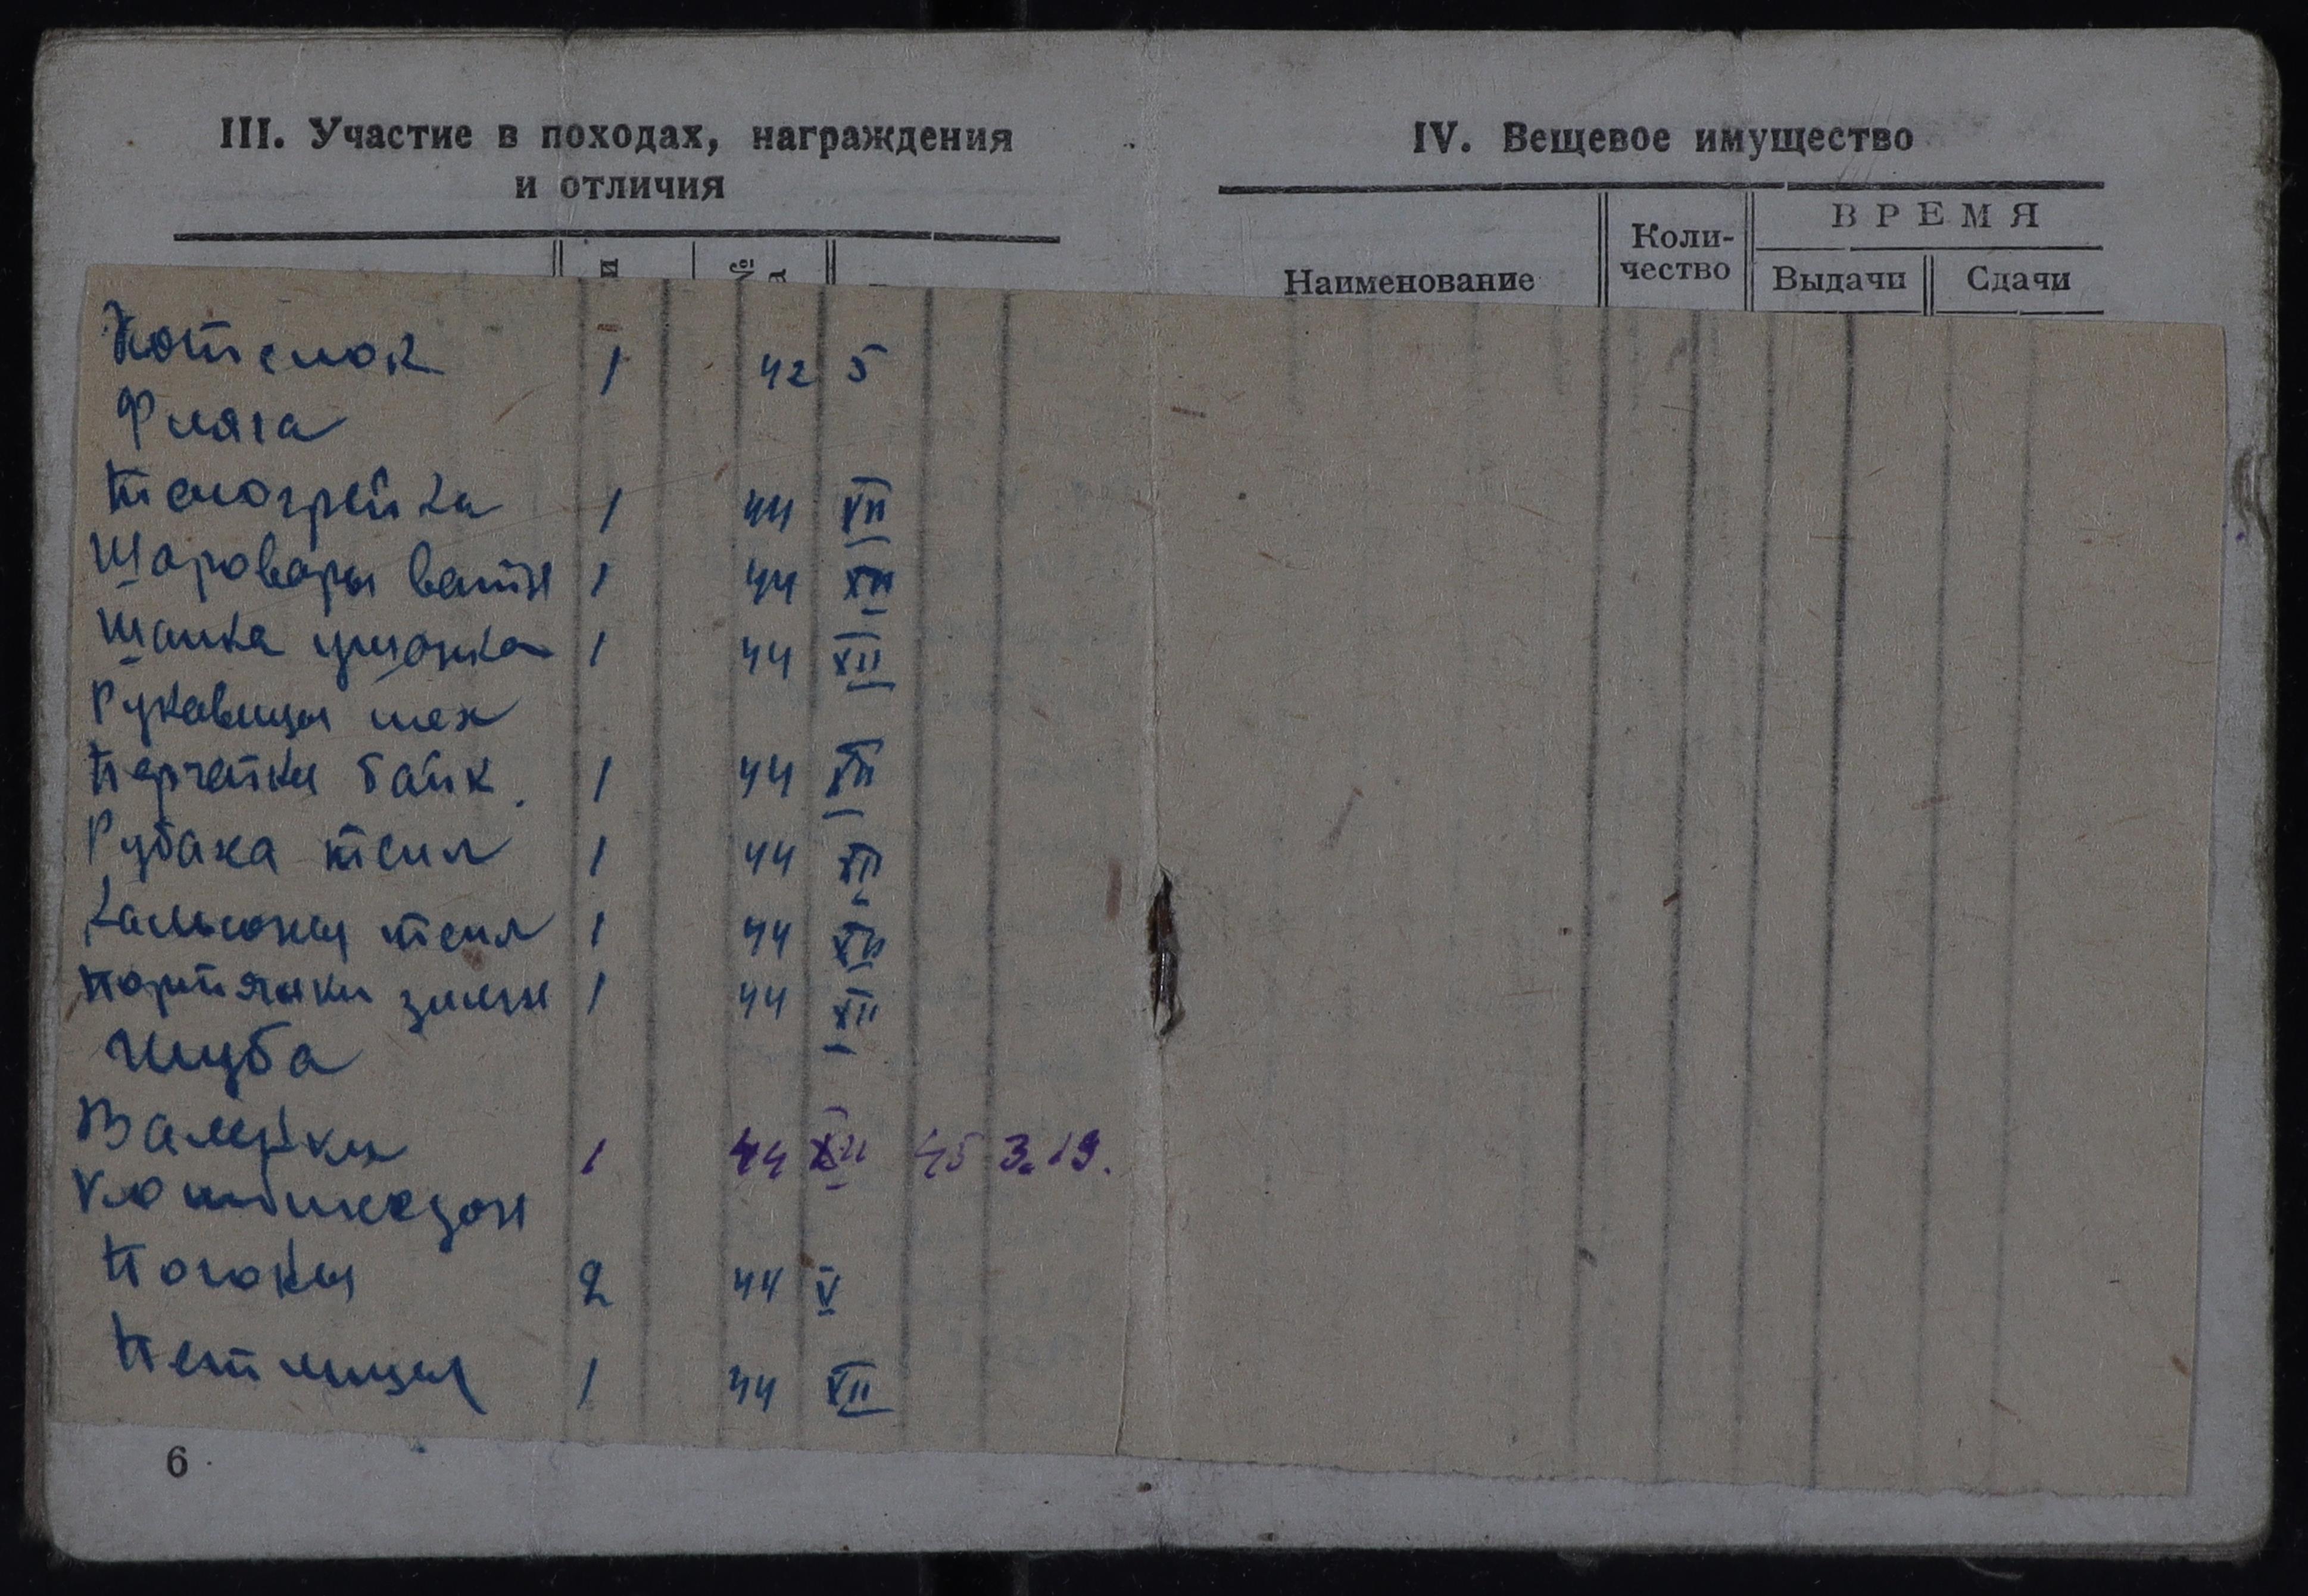 III. Участие в походах, награждения
и отличия
IV. Вещевое имущество
Наименование
Коли-
чество
ВРЕМЯ
Выдачи
Сдачи
Котелок 1 42 5
Фляга
Телогрейка 1 44 XII
Шаровары ватн 1 44 XII
Шапка ушанка 1 44 XII
Рукавицы мех
Перчатки байк 1 44 XII
Рубаха тепл 1 44 XII
Кальсоны тепл 1 44 XII
Портянки зимн 1 44 XII
Шуба
Валенки 1 44 XII 45 3.19.
Погоны 2 44 V
Петлицы 1 44 XII
6